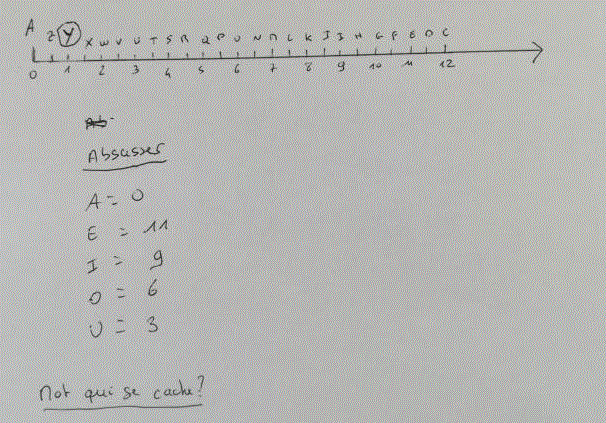 A Z Y X W V U T S R Q P O N M L K J I H G F E D C
0 1 2 3 4 5 6 7 8 9 10 11 12
Ab
Abscisses
A = 0
E = 11
I = 9
O = 6
U = 3
Mot qui se cache ?